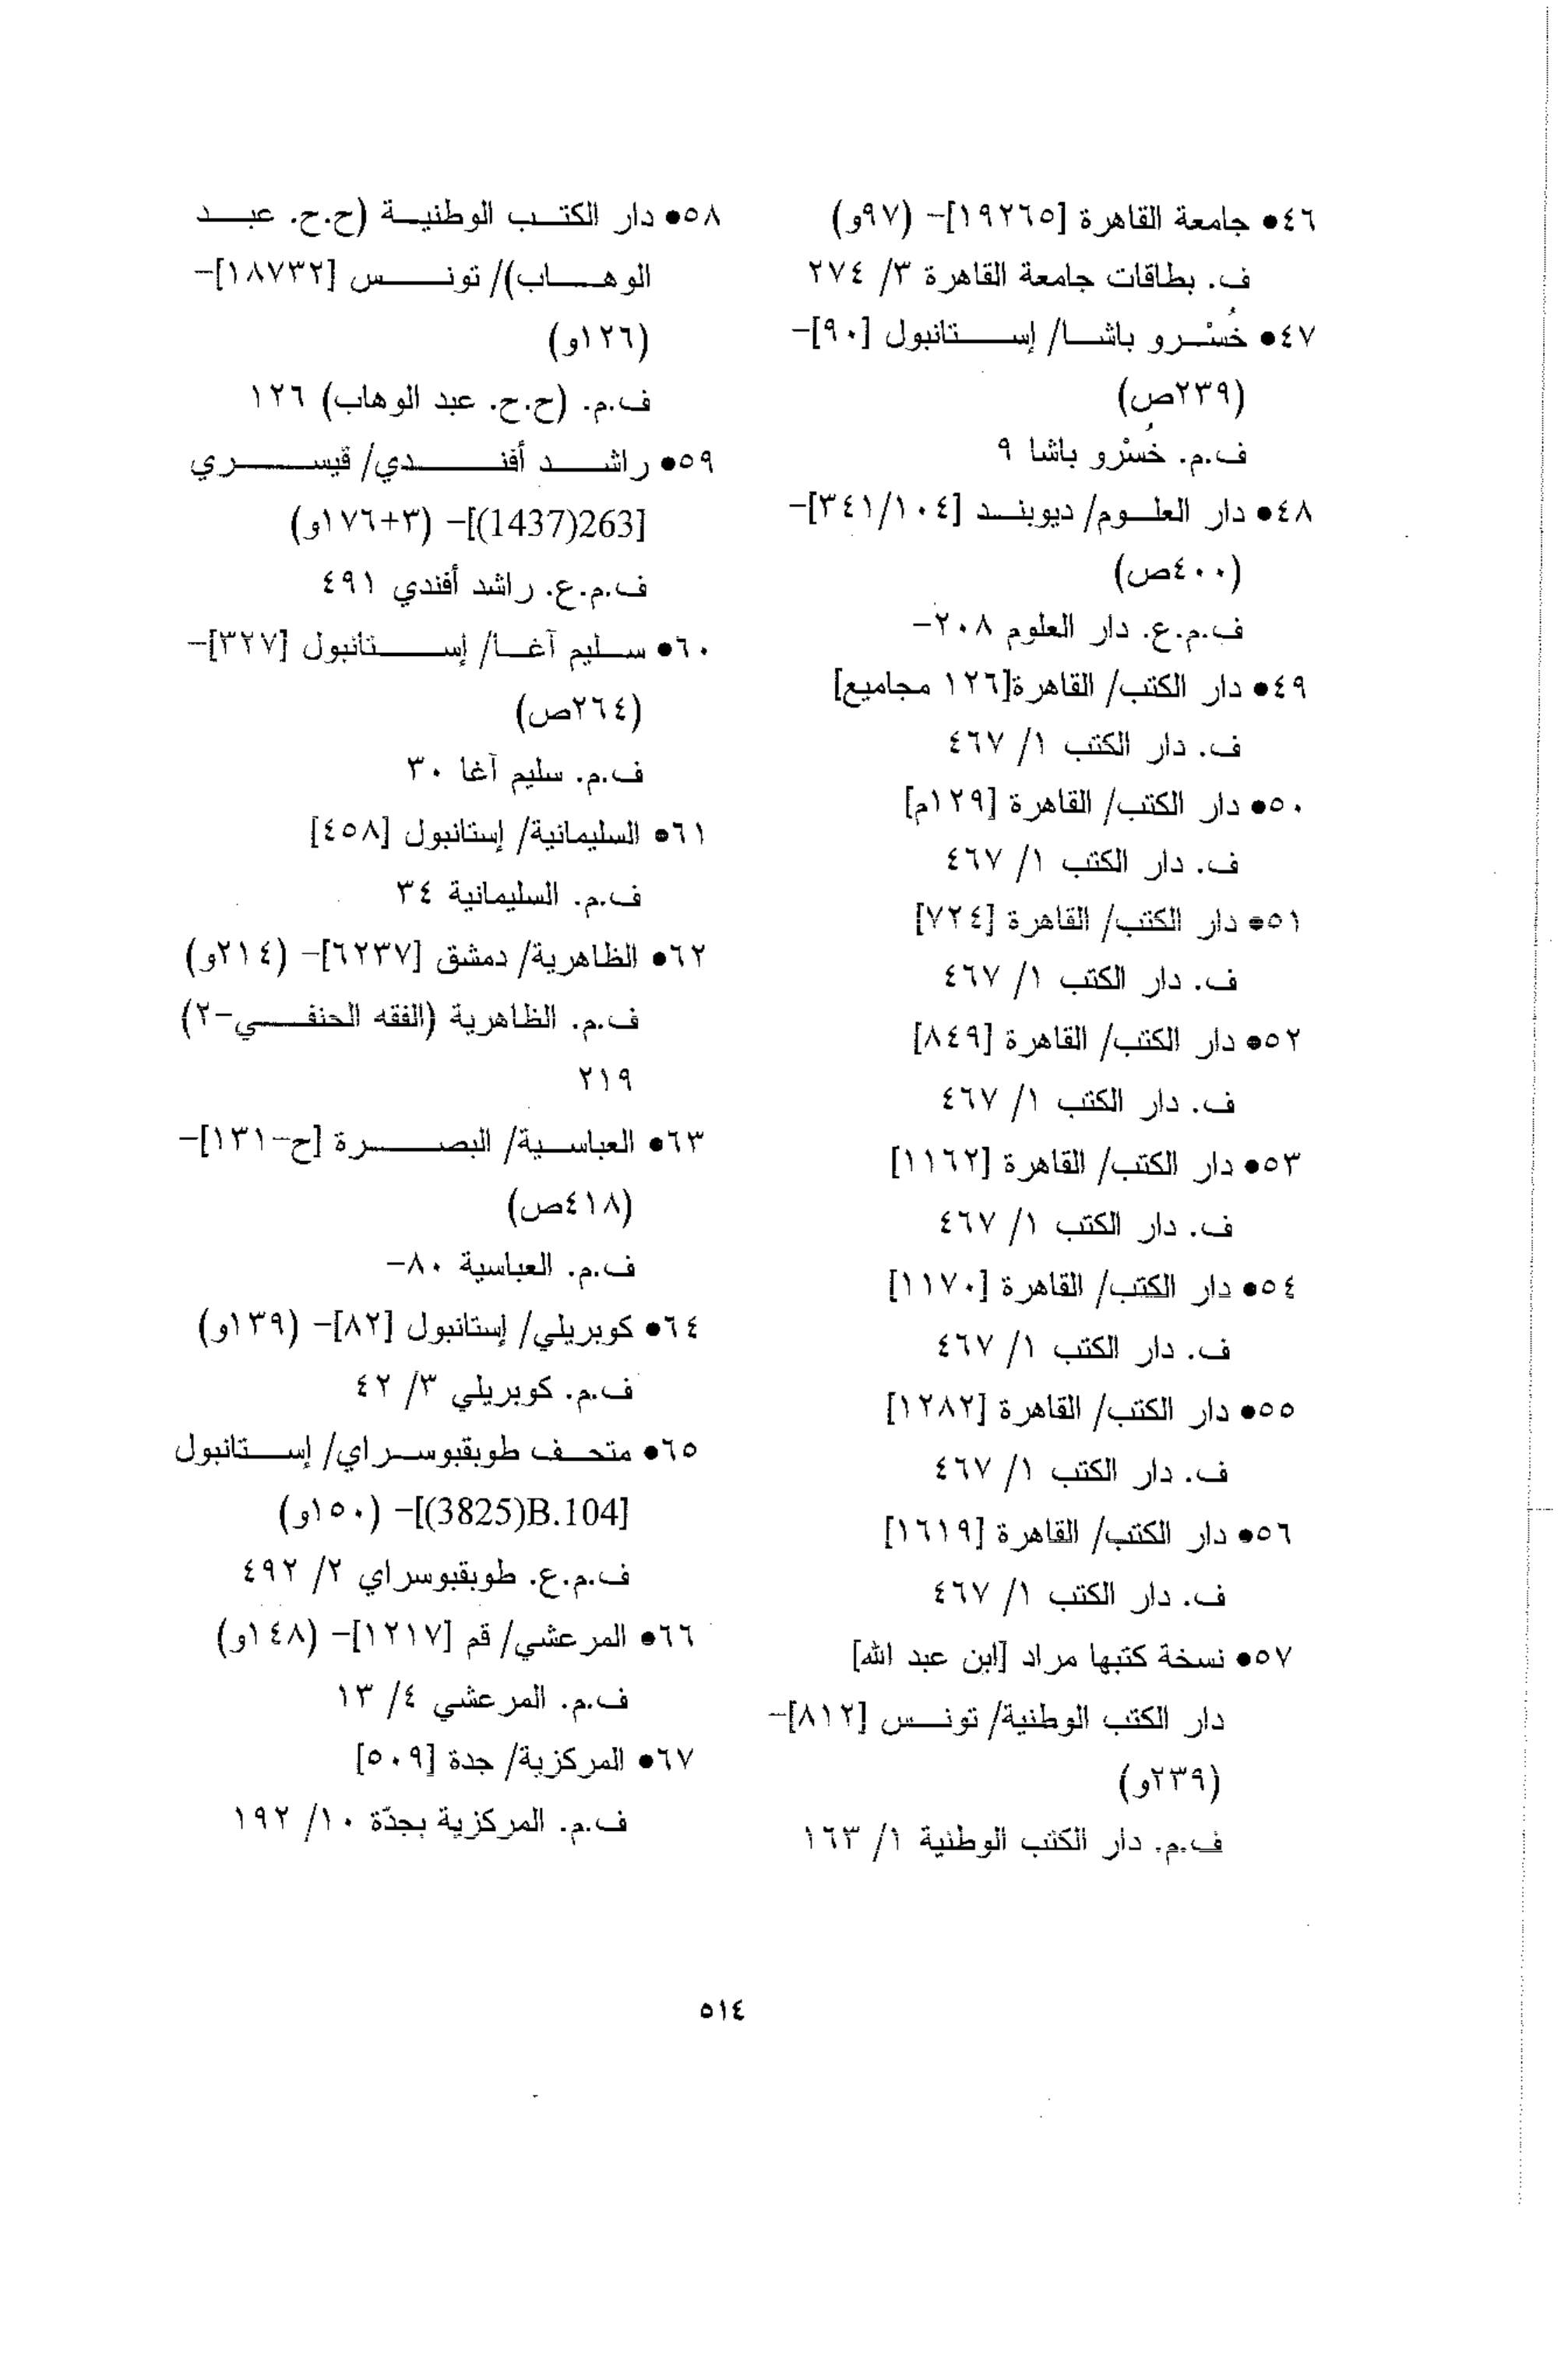 ٤٦● جامعة القاهرة [١٩٢٦٥]- (٩٧و)
ف. بطاقات جامعة القاهرة ٣/ ٢٧٤
٤٧● خُسْرو باشا/ إستانبول [٩٠]-
(٢٣٩ص)
ف.م. خُسْرو باشا ٩
٤٨● دار العلوم/ ديوبند [٣٤١/١٠٤]-
(٤٠٠ص)
ف.م.ع. دار العلوم ٢٠٨-
٤٩● دار الكتب/ القاهرة[١٢٦ مجاميع]
ف. دار الكتب ١/ ٤٦٧
٥٠● دار الكتب/ القاهرة [١٢٩م]
ف. دار الكتب ١/ ٤٦٧
٥١● دار الكتب/ القاهرة [٧٢٤]
ف. دار الكتب ١/ ٤٦٧
٥٢● دار الكتب/ القاهرة [٨٤٩]
ف. دار الكتب ١/ ٤٦٧
٥٣● دار الكتب/ القاهرة [١١٦٢]
ف. دار الكتب ١/ ٤٦٧
٥٤● دار الكتب/ القاهرة [١١٧٠]
ف. دار الكتب ١/ ٤٦٧
٥٥● دار الكتب/ القاهرة [١٢٨٢]
ف. دار الكتب ١/ ٤٦٧
٥٦● دار الكتب/ القاهرة [١٦١٩]
ف. دار الكتب ١/ ٤٦٧
٥٧● نسخة كتبها مراد [ابن عبد الله]
دار الكتب الوطنية/ تونس [٨١٢]-
(٢٣٩و)
ف.م. دار الكتب الوطنية ١/ ١٦٣
٥٨● دار الكتب الوطنية (ح.ح. عبد
الوهاب)/ تونس [١٨٧٣٢]-
(١٢٦و)
ف.م. (ح.ح. عبد الوهاب) ١٢٦
٥٩● راشد أفندي/ قيسري
[263(1437)]- (٣+١٧٦و)
ف.م.ع. راشد أفندي ٤٩١
٦٠● سليم آغا/ إستانبول [٣٢٧]-
(٢٦٤ص)
ف.م. سليم آغا ٣٠
٦١● السليمانية/ إستانبول [٤٥٨]
ف.م. السليمانية ٣٤
٦٢● الظاهرية/ دمشق [٦٢٣٧]- (٢١٤و)
ف.م. الظاهرية (الفقه الحنفي-٢)
٢١٩
٦٣● العباسية/ البصرة [ح-١٣١]-
(٤١٨ص)
ف.م. العباسية ٨٠-
٦٤● كوبريلي/ إستانبول [٨٢]- (١٣٩و)
ف.م. كوبريلي ٣/ ٤٢
٦٥● متحف طوبقبوسراي/ إستانبول
[B.104(3825)]- (١٥٠و)
ف.م.ع. طوبقبوسراي ٢/ ٤٩٢
٦٦● المرعشي/ قم [١٢١٧]- (١٤٨و)
ف.م. المرعشي ٤/ ١٣
٦٧● المركزية/ جدة [٥٠٩]
ف.م. المركزية بجدّة ١٠/ ١٩٢
٥١٤